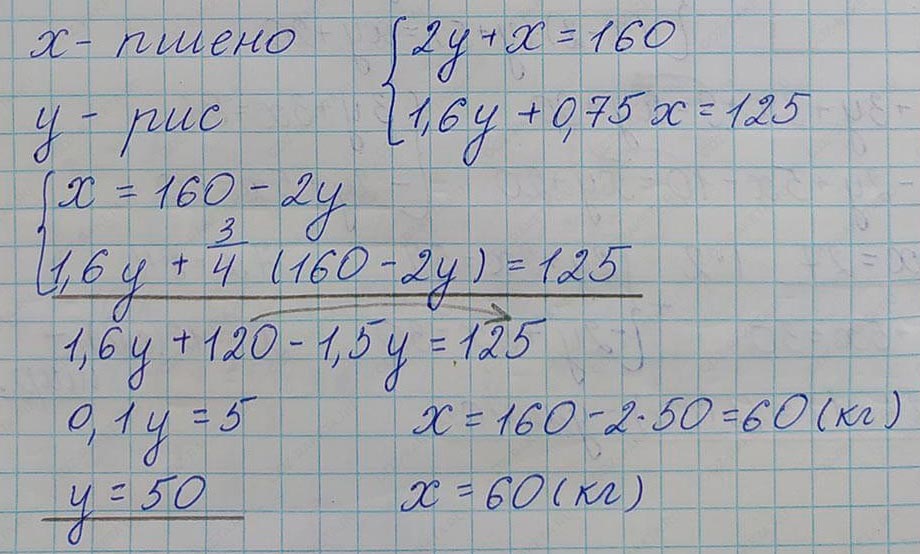 x - пшено
{ 2y + x = 160
y - рис
1,6y + 0,75x = 125
{ x = 160 - 2y
1,6y + 3/4 (160 - 2y) = 125
1,6y + 120 - 1,5y = 125
0,1y = 5
x = 160 - 2·50 = 60 (кг)
y = 50
x = 60 (кг)